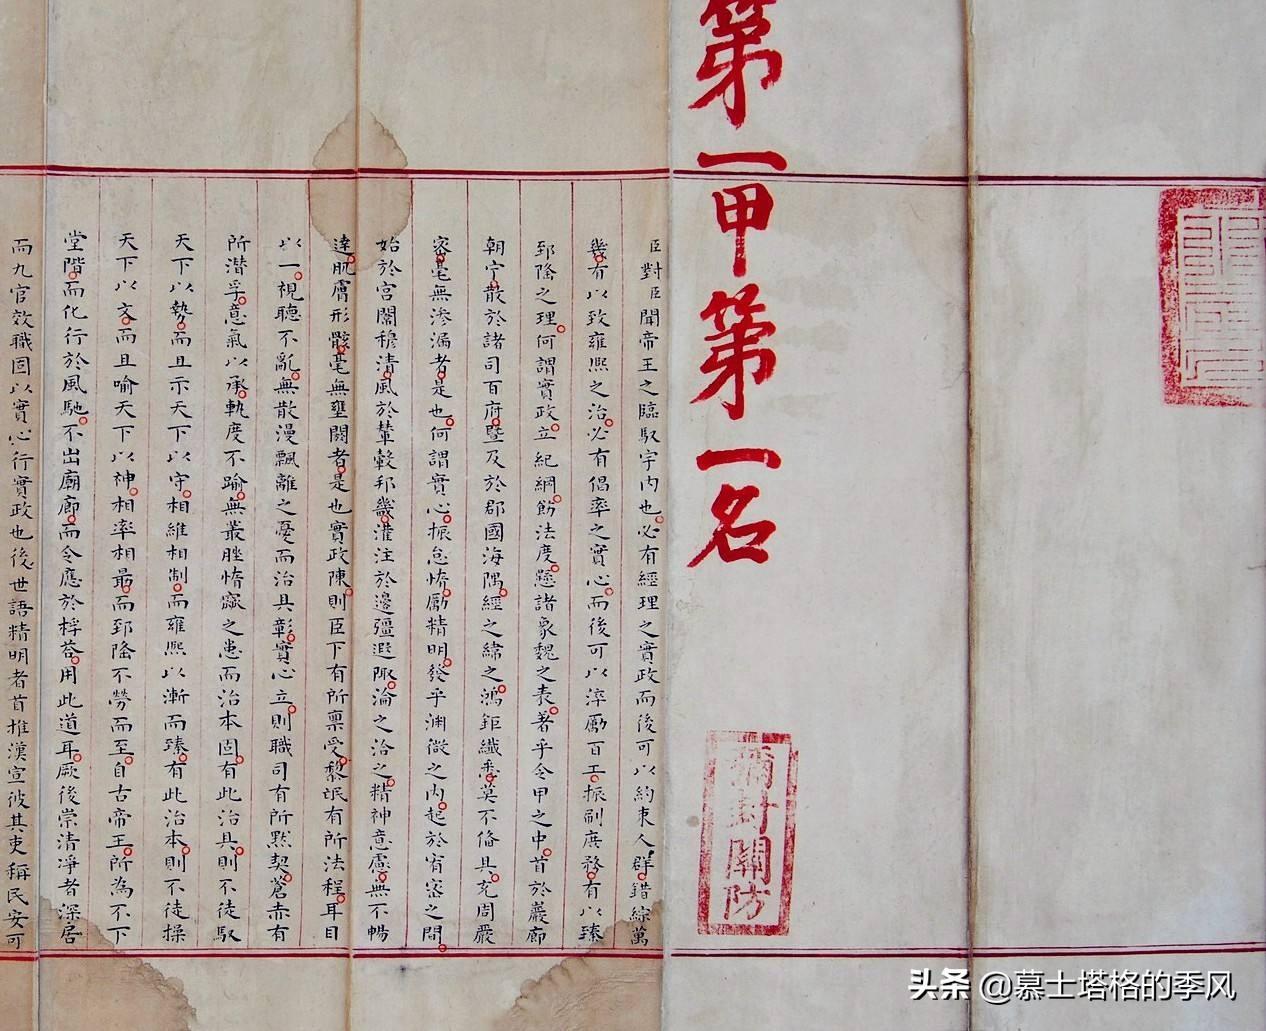 第一甲第一名
彌封關防
臣對臣聞帝王之臨馭宇內也必有經理之實政而後可以約束人群錯綜萬
幾有以致雍熙之治必有倡率之實心而後可以淬勵百工振刷庶務有以臻
郅隆之理何謂實政立紀綱飭法度懸諸象魏之表著乎令甲之中首於巖廊
朝宁散於諸司百府暨及於郡國海隅經之緯之鴻鉅纖悉莫不備具充周嚴
密毫無滲漏者是也何謂實心振怠惰勵精明發乎淵微之內起於宥密之間
始於宮闈穆清風於輦轂邦畿灌注於邊疆遐陬淪之洽之精神意慮無不暢
達肌膚形骸毫無壅閼者是也實政陳則臣下有所稟受黎氓有所法程耳目
以一視聽不亂無散漫飄離之憂而治具彰實心立則職司有所默契蒼赤有
所潛孚意氣以承軌度不踰無叢脞惰窳之患而治本固有此治具則不徒馭
天下以勢而且示天下以守相維相制而雍熙以漸而臻有此治本則不徒操
天下以文而且喻天下以神相率相最而郅隆不勞而至自古帝王所為不下
堂階而化行於風馳不出廟廊而令應於桴荅用此道耳厥後崇清淨者深居
而九官效職固以實心行實政也後世語精明者首推漢宣彼其吏稱民安可
头条 @慕士塔格的季风